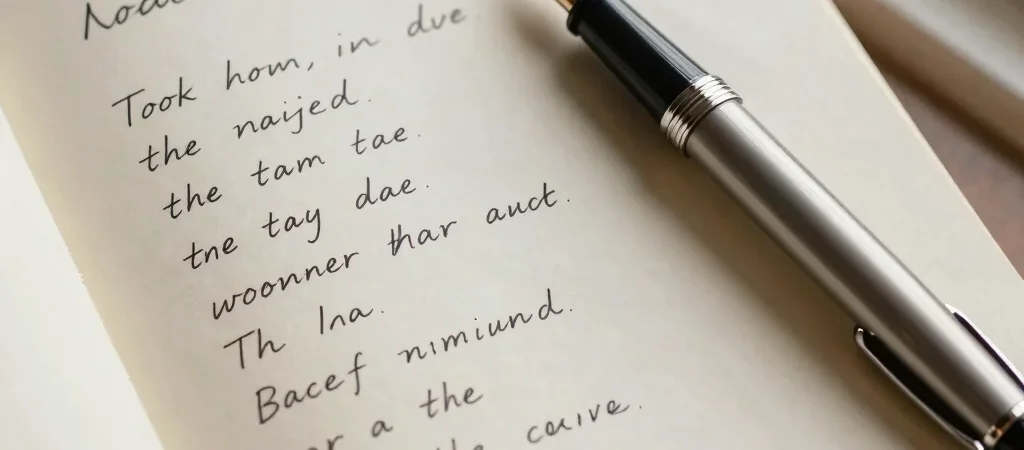 Took hom, in due
the naijed.
the tam tae.
tne tay dae.
woonner thar auct.
Th lna.
Bacef nimiund.
a the